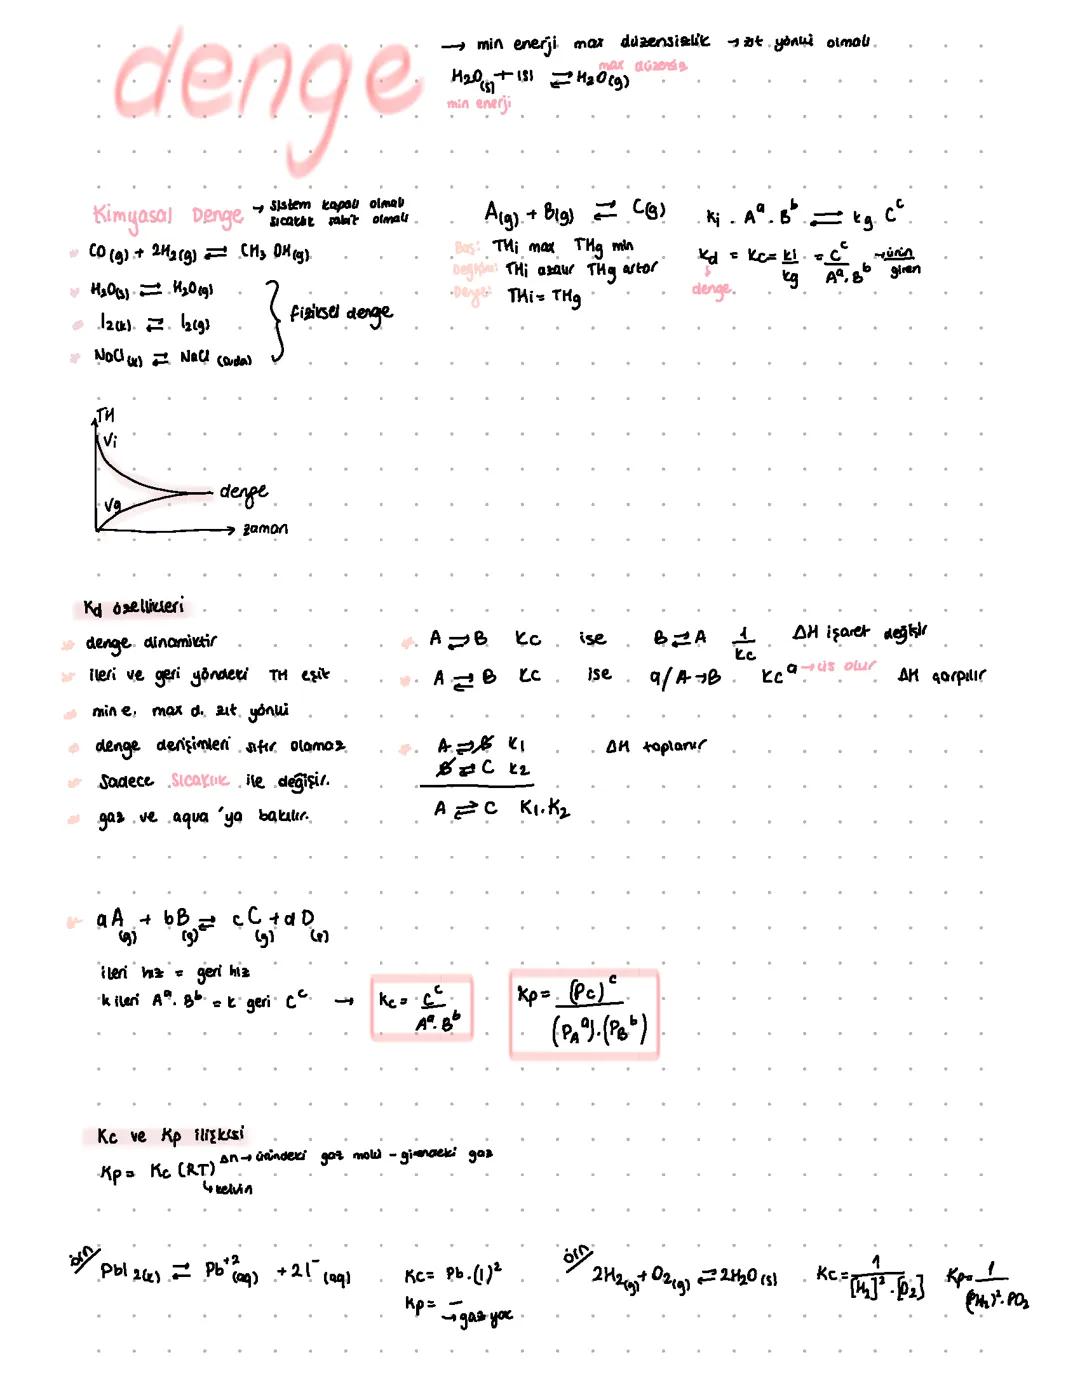 denge
→ min enerji max düzensizlik → zıt yönlü olmalı
max düzensiz
H₂O(s) + ısı ⇌ H₂O(g)
min enerji
Kimyasal Denge → sistem kapalı olmalı
sıcaklık sabit olmalı
CO(g) + 2H₂(g) ⇌ CH₃OH(g)
H₂O(s) ⇌ H₂O(g)
I₂(k) ⇌ I₂(g)
NaCl(k) ⇌ NaCl(suda)
fiziksel denge
A(g) + B(g) ⇌ C(g)
Baş: THi max THg min
Değişim: THi azalır THg artar
Denge: THi = THg
ki . Aᵃ . Bᵇ ⇌ kg Cᶜ
Kd = Kc = ki/kg = Cᶜ/Aᵃ.Bᵇ → ürün/giren
denge
TH
Vi
denge
Vg
zaman
Kd özellikleri
denge dinamiktir
ileri ve geri yöndeki TH eşit
min e, max d, zıt yönlü
denge derişimleri sıfır olamaz
Sadece SICAKLIK ile değişir.
gaz ve aqua 'ya bakılır.
A ⇌ B Kc ise B ⇌ A 1/Kc ΔH işaret değişir
A ⇌ B Kc ise a/A → B Kcᵃ → üs olur ΔH çarpılır
A ⇌ B K1 ΔH toplanır
B ⇌ C K2
A ⇌ C K₁.K₂
aA(g) + bB(g) ⇌ cC(g) + dD(s)
ileri hız = geri hız
k ileri Aᵃ . Bᵇ = k geri Cᶜ → Kc = Cᶜ/Aᵃ.Bᵇ
Kp = (Pc)ᶜ/(P_Aᵃ).(P_Bᵇ)
Kc ve Kp ilişkisi
Kp = Kc (RT)^Δn → üründeki gaz molü - girendeki gaz
↳ kelvin
örn PbI₂(k) ⇌ Pb⁺²(aq) + 2I⁻(aq) Kc = Pb.(I)²
Kp = — → gaz yok
örn 2H₂(g) + O₂(g) ⇌ 2H₂O(s) Kc = 1/[H₂]².[O₂] Kp = 1/(PH₂)².PO₂